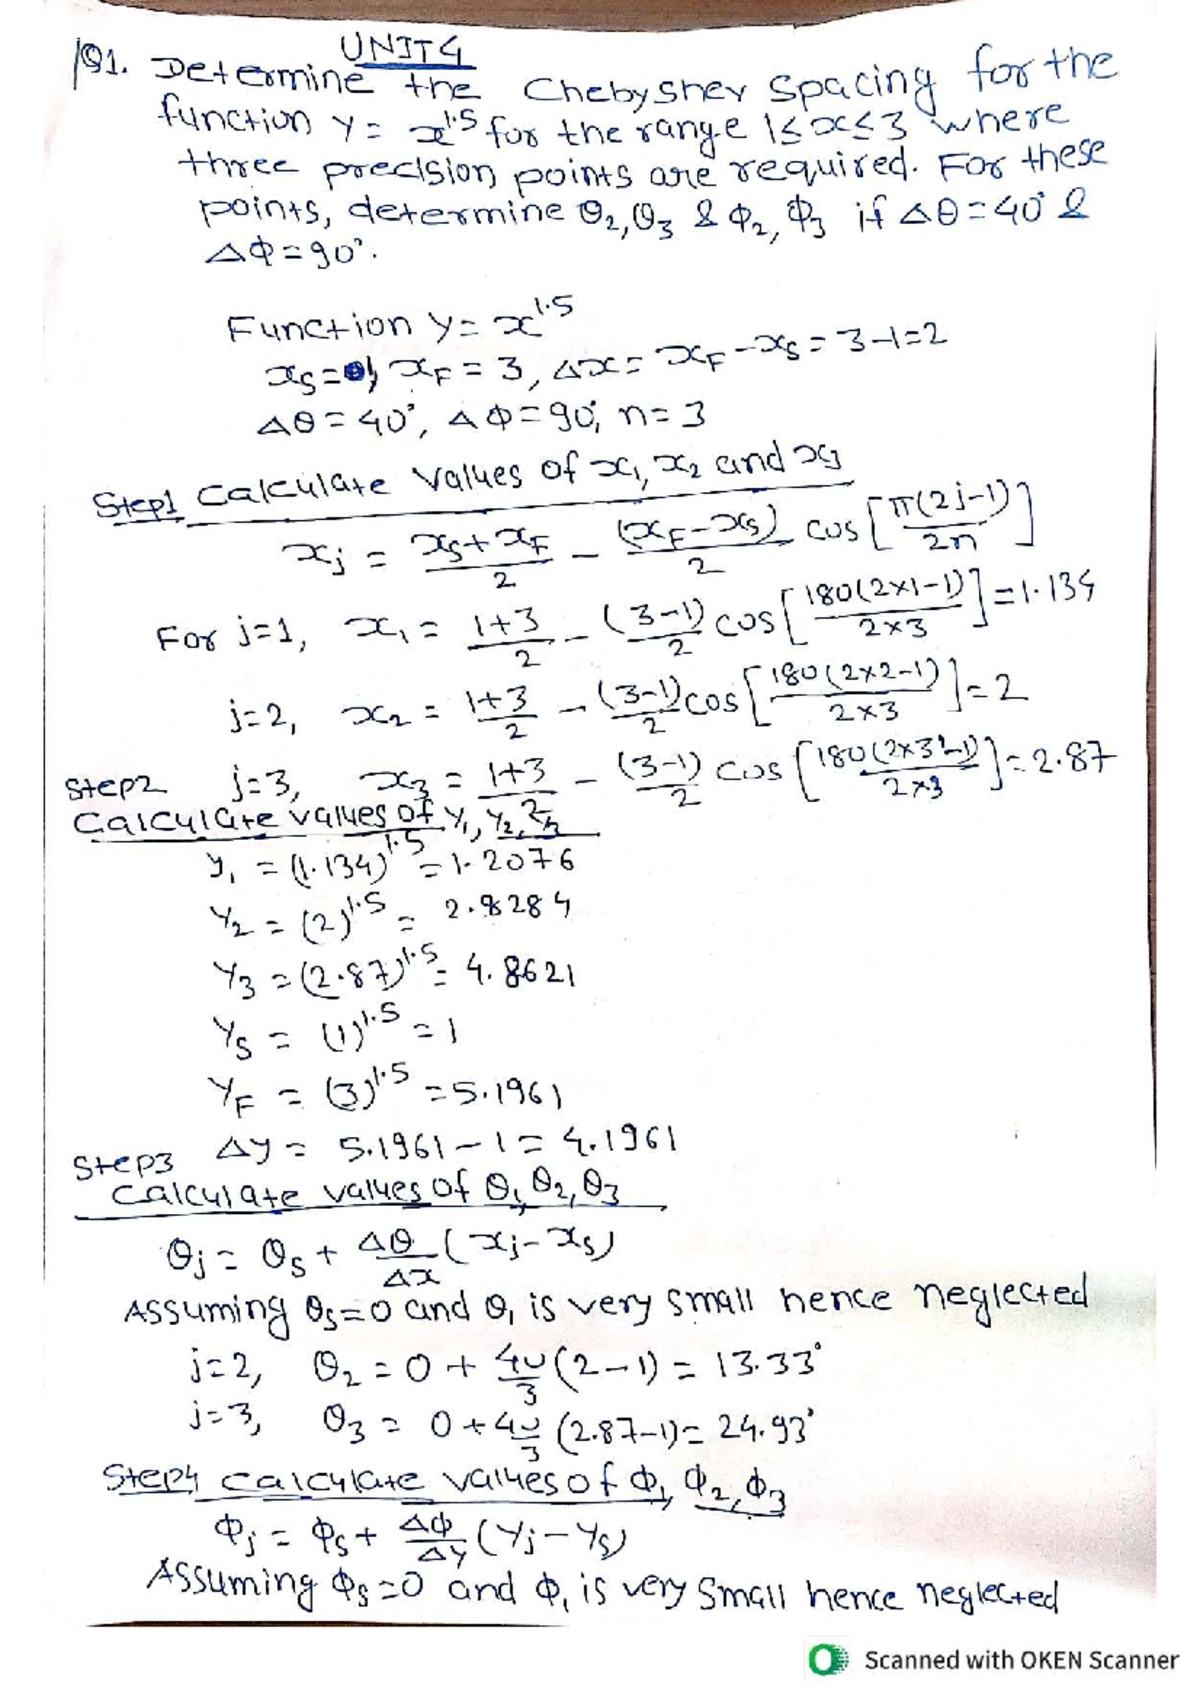 UNIT 4
Q1. Determine the Chebyshev Spacing for the
function y = x^1.5 for the range 1≤x≤3 where
three precision points are required. For these
points, determine θ2, θ3 & Φ2, Φ3 if Δθ=40° &
ΔΦ=90°.
Function y = x^1.5
xs=1, xF = 3, Δx = xF - xs = 3-1=2
Δθ = 40°, ΔΦ=90°, n=3
Step1 Calculate values of x1, x2 and x3
xj = (xs+xF)/2 - (xF-xs)/2 cos[π(2j-1)/2n]
For j=1, x1 = (1+3)/2 - (3-1)/2 cos[180(2×1-1)/(2×3)] = 1.134
j=2, x2 = (1+3)/2 - (3-1)/2 cos[180(2×2-1)/(2×3)] = 2
Step2 j=3, x3 = (1+3)/2 - (3-1)/2 cos[180(2×3-1)/(2×3)] = 2.87
Calculate values of Y1, Y2, Y3
y1 = (1.134)^1.5 = 1.2076
Y2 = (2)^1.5 = 2.8284
Y3 = (2.87)^1.5 = 4.8621
Ys = (1)^1.5 = 1
YF = (3)^1.5 = 5.1961
Δy = 5.1961 - 1 = 4.1961
Step3
Calculate values of θ1, θ2, θ3
θj = θs + Δθ/Δx (xj - xs)
Assuming θs=0 and θ1 is very small hence neglected
j=2, θ2 = 0 + 40/3 (2-1) = 13.33°
j=3, θ3 = 0 + 40/3 (2.87-1) = 24.93°
Step4 Calculate values of Φ1, Φ2, Φ3
Φj = Φs + ΔΦ/ΔY (Yj - Ys)
Assuming Φs=0 and Φ1 is very small hence neglected
Scanned with OKEN Scanner